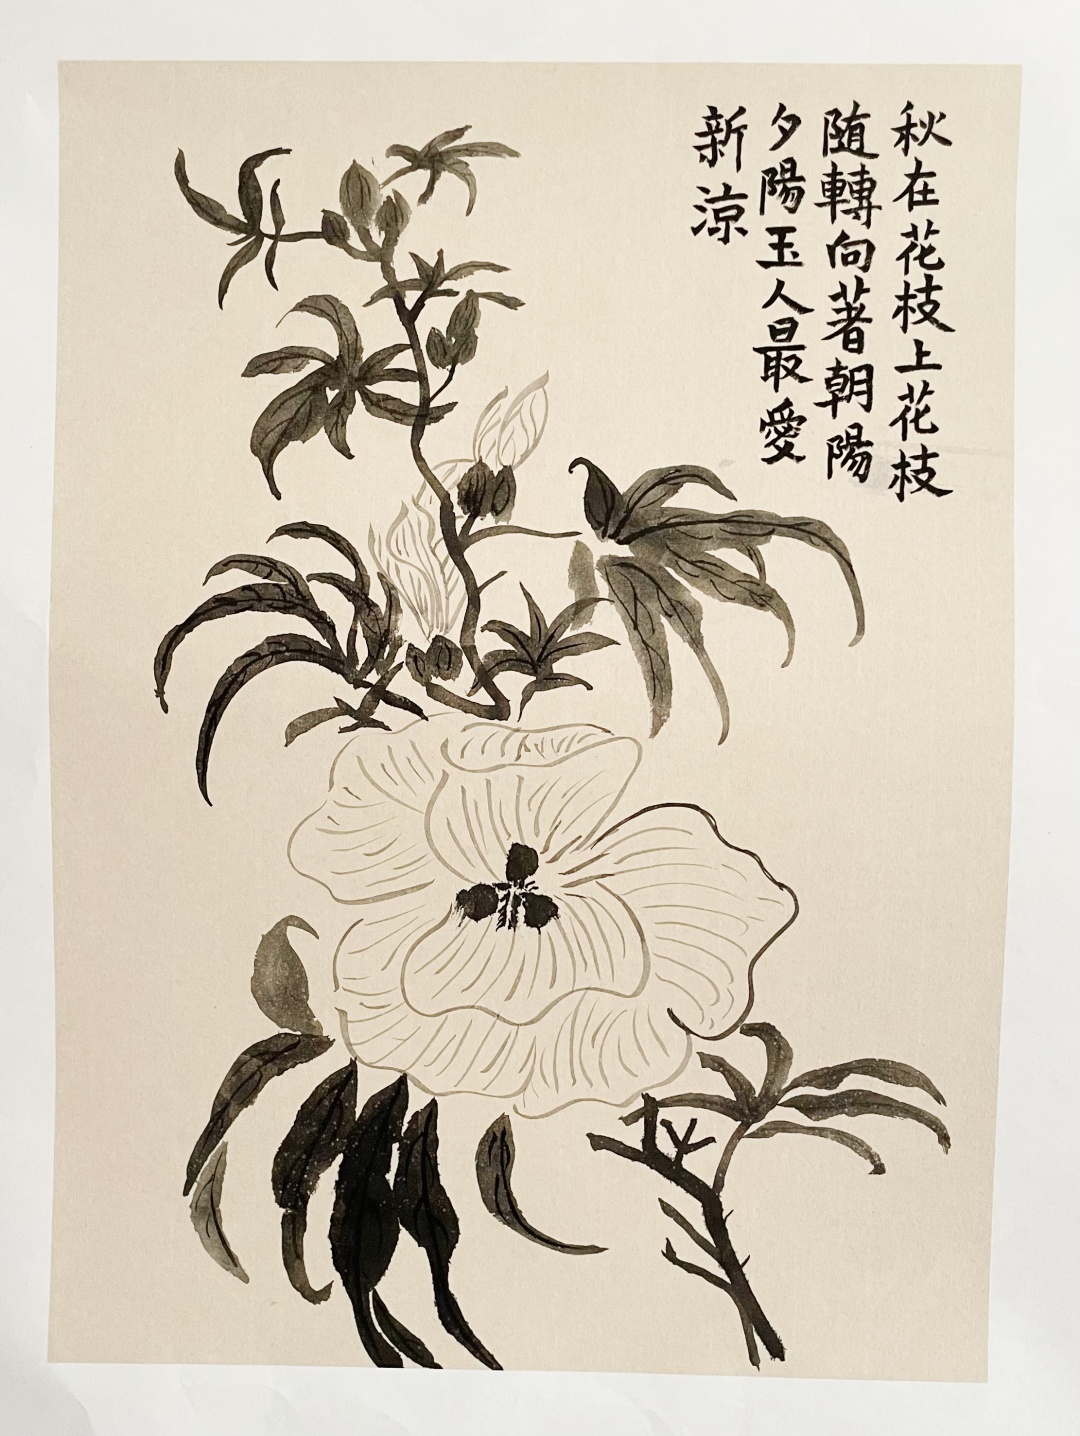 秋在花枝上花枝
随轉向著朝陽
夕陽玉人最愛
新涼